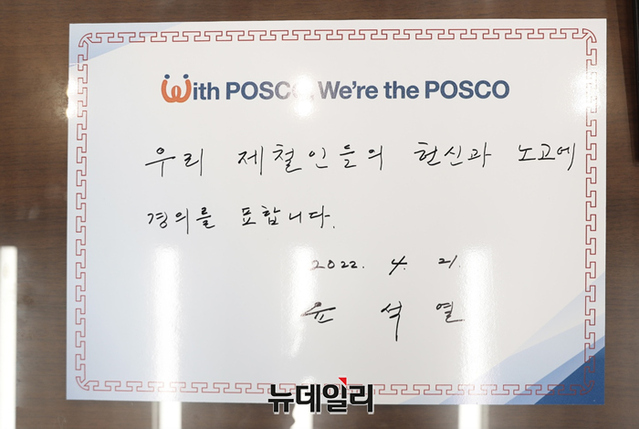 With POSCO, We're the POSCO
우리 제철인들의 헌신과 노고에
경의를 표합니다.
2022. 4. 21.
윤석열
뉴데일리